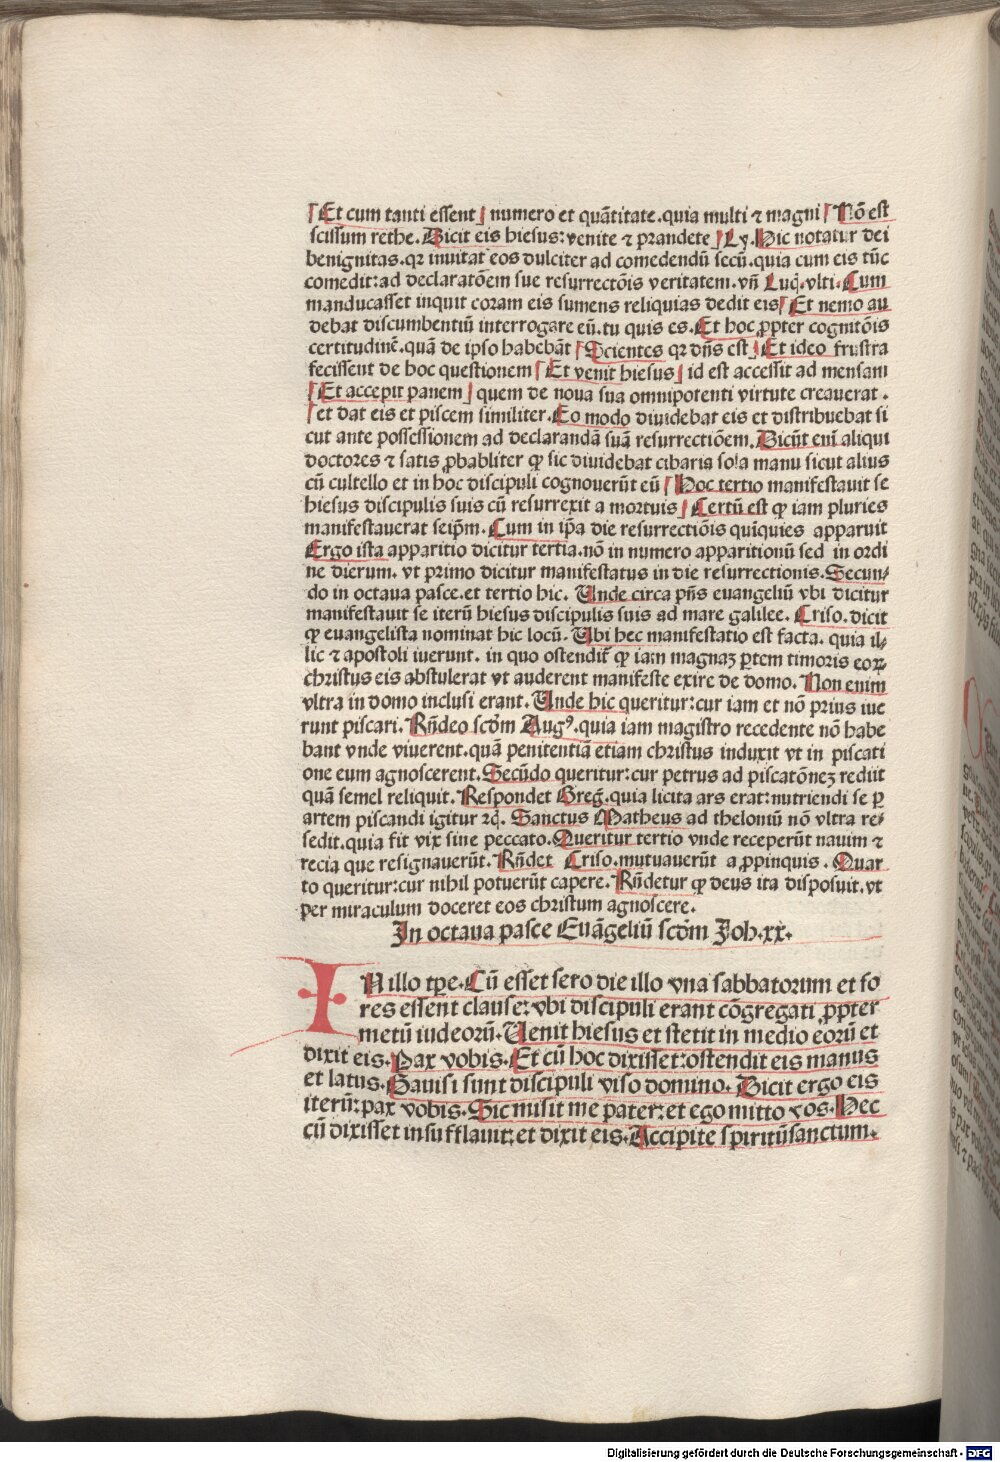 Et cum tanti essent numero et quãtitate.quia multi ⁊ magni Nõ est
scissum rethe. Dicit eis hiesus: venite ⁊ prandete Ly. Hic notatur dei
benignitas.qꝛ inuitat eos dulciter ad comedendũ secũ.quia cum eis tũc
comedit:ad declaratõem sue resurrectõis veritatem.vñ Luq̃.vlti.Cum
manducasset inquit coram eis sumens reliquias dedit eis Et nemo au
debat discumbentiũ interrogare eũ.tu quis es.Et hoc ꝓpter cognitõis
certitudinẽ.quã de ipso habebãt Scientes qꝛ dñs est Et ideo frustra
fecissent de hoc questionem Et venit hiesus id est accessit ad mensam
Et accepit panem quem de noua sua omnipotenti virtute creauerat.
et dat eis et piscem similiter.Eo modo diuidebat eis et distribuebat si
cut ante possessionem ad declarandã suã resurrectiõem.Dicũt eni aliqui
doctores ⁊ satis ꝓbabliter ꝙ sic diuidebat cibaria sola manu sicut alius
cũ cultello et in hoc discipuli cognouerũt eũ Hoc tertio manifestauit se
hiesus discipulis suis cũ resurrexit a mortuis Certũ est ꝙ iam pluries
manifestauerat seip̃m. Cum in ip̃a die resurrectiõis quiquies apparuit
Ergo ista apparitio dicitur tertia.nõ in numero apparitionũ sed in ordi
ne dierum. vt primo dicitur manifestatus in die resurrectionis.Secun⸗
do in octaua pasce.et tertio hic. Unde circa pñs euangeliũ vbi dicitur
manifestauit se iterũ hiesus discipulis suis ad mare galilee. Criso.dicit
ꝙ euangelista nominat hic locũ. Ubi hec manifestatio est facta. quia il⸗
lic ⁊ apostoli iuerunt. in quo ostendit̃ ꝙ iam magnaz ꝑtem timoris eoꝝ
christus eis abstulerat vt auderent manifeste exire de domo. Non enim
vltra in domo inclusi erant. Unde hic queritur:cur iam et nõ prius iue
runt piscari. Rñdeo scd̃m Augꝰ.quia iam magistro recedente nõ habe
bant vnde viuerent.quã penitentiã etiam christus induxit vt in piscati
one eum agnoscerent.Secũdo queritur:cur petrus ad piscatõnez rediit
quã semel reliquit. Respondet Greg̃.quia licita ars erat:nutriendi se ꝑ
artem piscandi igitur ꝛc̃. Sanctus Matheus ad theloniũ nõ vltra re⸗
sedit.quia fit vix sine peccato.Queritur tertio vnde receperũt nauim ⁊
recia que resignauerũt. Rñdet Criso.mutuauerũt a ꝓpinquis. Quar
to queritur:cur nihil potuerũt capere. Rñdetur ꝙ deus ita disposuit.vt
per miraculum doceret eos christum agnoscere.
In octaua pasce Euãgeliũ scd̃m Joh.xx.
IN illo tp̃e.Cũ esset sero die illo vna sabbatorum et fo
res essent clause: vbi discipuli erant cõgregati ꝓpter
metũ iudeorũ.Uenit hiesus et stetit in medio eorũ et
dixit eis.Pax vobis.Et cũ hoc dixisset:ostendit eis manus
et latus.Gauisi sunt discipuli viso domino. Dicit ergo eis
iterũ:pax vobis.Sic misit me pater:et ego mitto vos.Hec
cũ dixisset insufflauit:et dixit eis.Accipite spiritũsanctum.
Digitalisierung gefördert durch die Deutsche Forschungsgemeinschaft - DFG